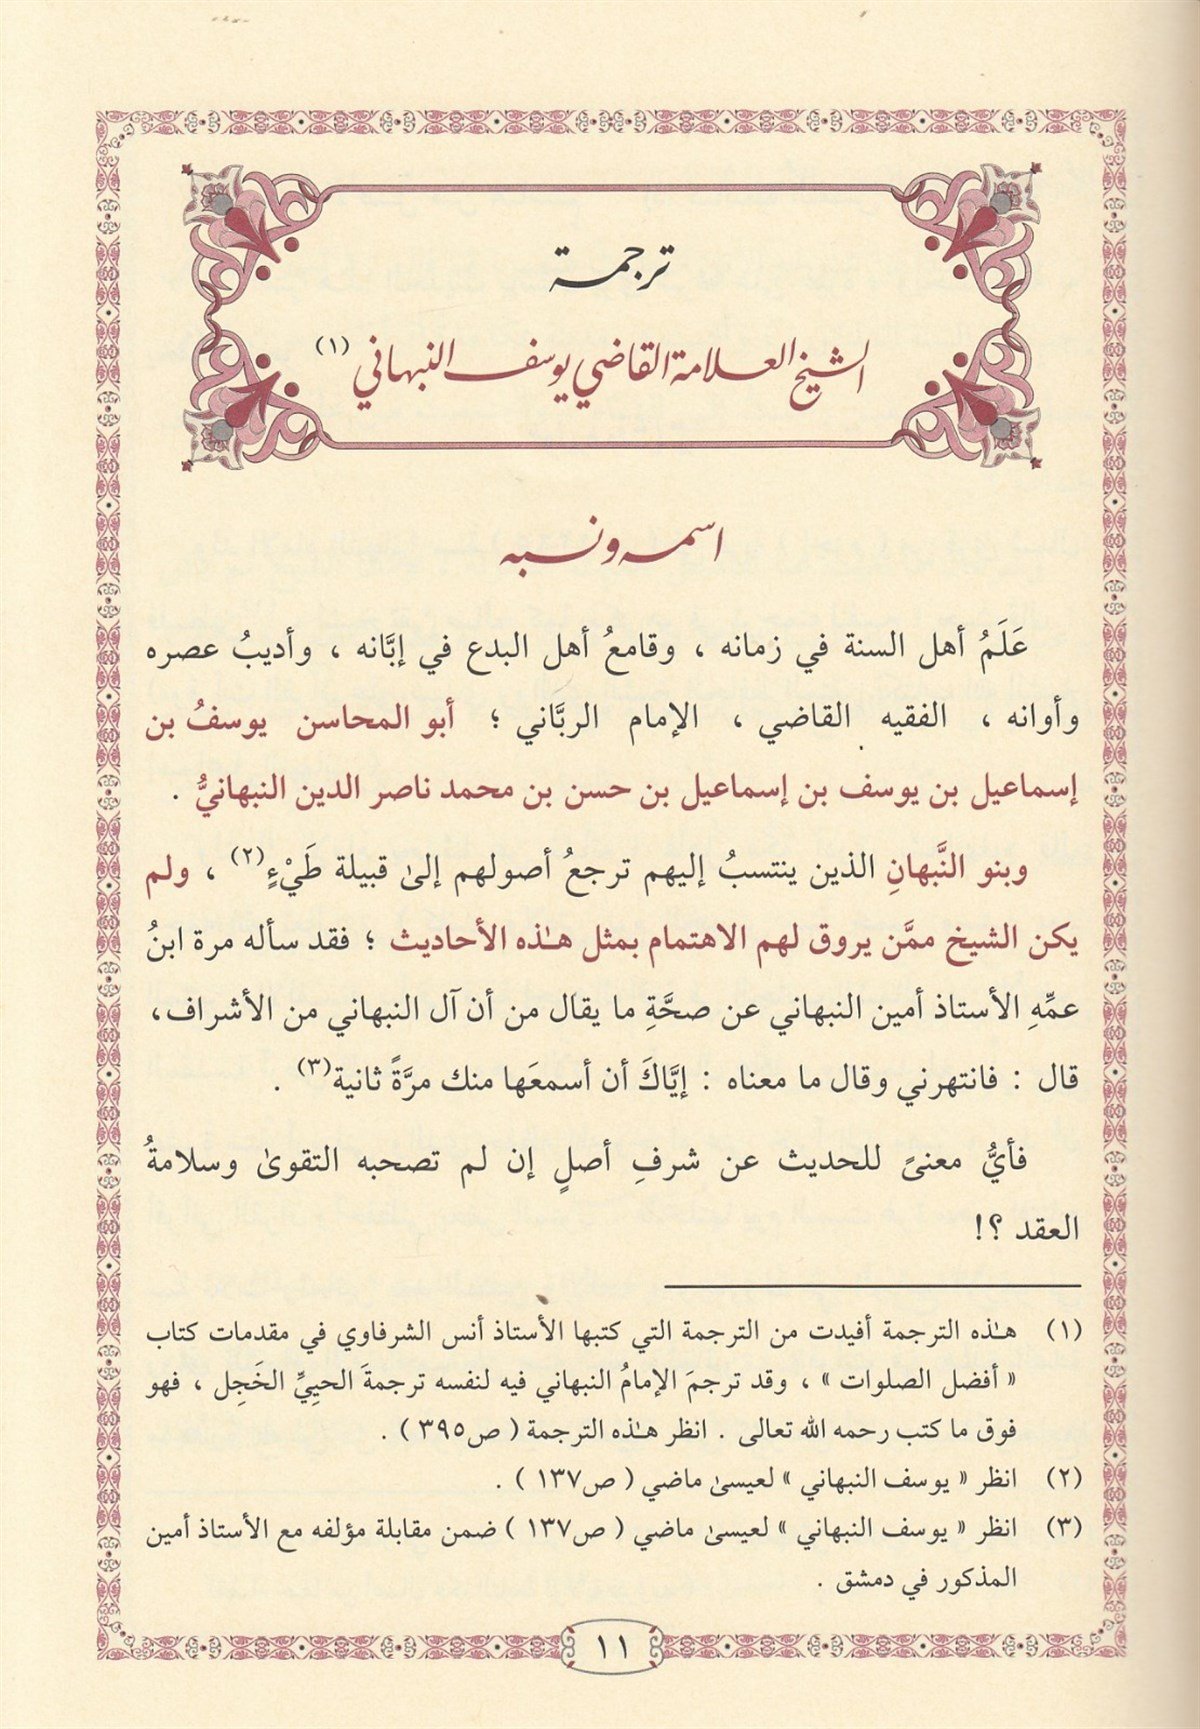 ترجمة
الشيخ العلامة القاضي يوسف النبهاني (١)
اسمه ونسبه
عَلَمُ أهل السنة في زمانه ، وقامعُ أهل البدع في إبَّانه ، وأديبُ عصره
وأوانه ، الفقيه القاضي ، الإمام الربَّاني ؛ أبو المحاسن يوسفُ بن
إسماعيل بن يوسف بن إسماعيل بن حسن بن محمد ناصر الدين النبهانيُّ .
وبنو النَّبهانِ الذين ينتسبُ إليهم ترجعُ أصولهم إلىٰ قبيلة طَيْءٍ(٢) ، ولم
يكن الشيخ ممَّن يروق لهم الاهتمام بمثل هـٰذه الأحاديث ؛ فقد سأله مرة ابنُ
عمِّهِ الأستاذ أمين النبهاني عن صحَّةِ ما يقال من أن آل النبهاني من الأشراف،
قال : فانتهرني وقال ما معناه : إيَّاكَ أن أسمعَها منك مرَّةً ثانية(٣) .
فأيُّ معنىً للحديث عن شرفِ أصلٍ إن لم تصحبه التقوىٰ وسلامةُ
العقد ؟!
(١) هـٰذه الترجمة أفيدت من الترجمة التي كتبها الأستاذ أنس الشرفاوي في مقدمات كتاب
« أفضل الصلوات » ، وقد ترجمَ الإمامُ النبهاني فيه لنفسه ترجمةَ الحيِيِّ الخَجِل ، فهو
فوق ما كتب رحمه الله تعالى . انظر هـٰذه الترجمة ( ص٣٩٥ ) .
(٢) انظر « يوسف النبهاني » لعيسىٰ ماضي ( ص١٣٧ ) .
(٣) انظر « يوسف النبهاني » لعيسىٰ ماضي ( ص١٣٧ ) ضمن مقابلة مؤلفه مع الأستاذ أمين
المذكور في دمشق .
١١